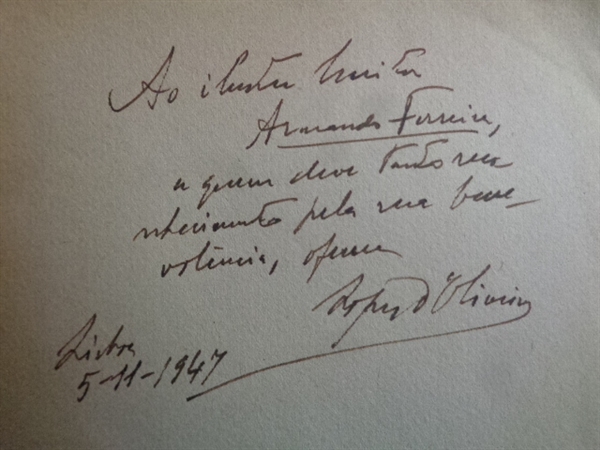 Ao ilustre Escritor
Armando Ferreira,
a quem devo tanto reco
nhecimento pela sua bene-
volência, oferece
Lopes d'Oliveira
Lisboa
5-11-1947